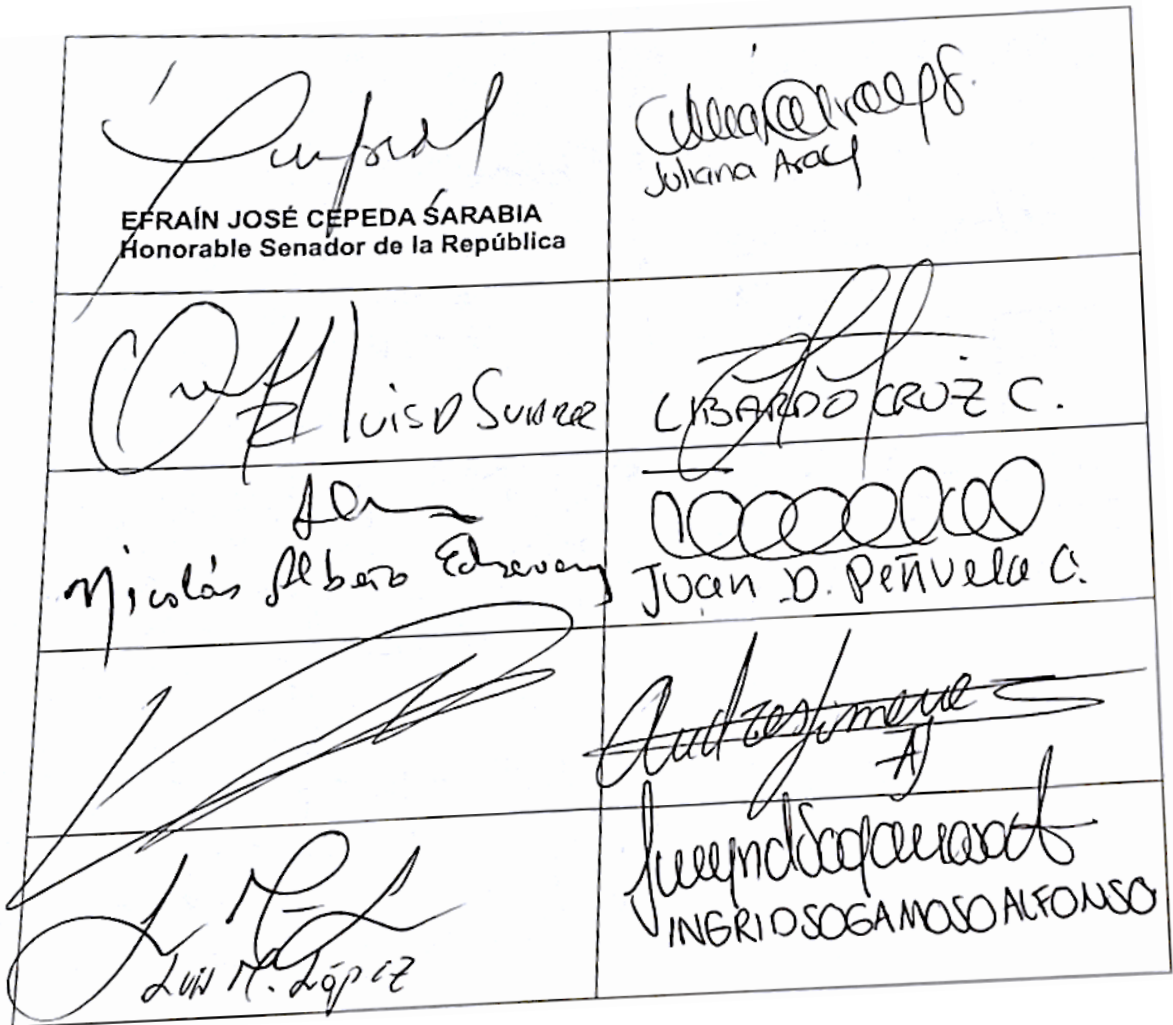 EFRAÍN JOSÉ CEPEDA SARABIA
Honorable Senador de la República
Juliana Aray
LUIS D SUAREZ
LIBARDO CRUZ C.
Nicolás Albeiro Echeverry
Juan D. Peñuela C.
Andres Jimene
INGRID SOGAMOSO ALFONSO
Luis M. López